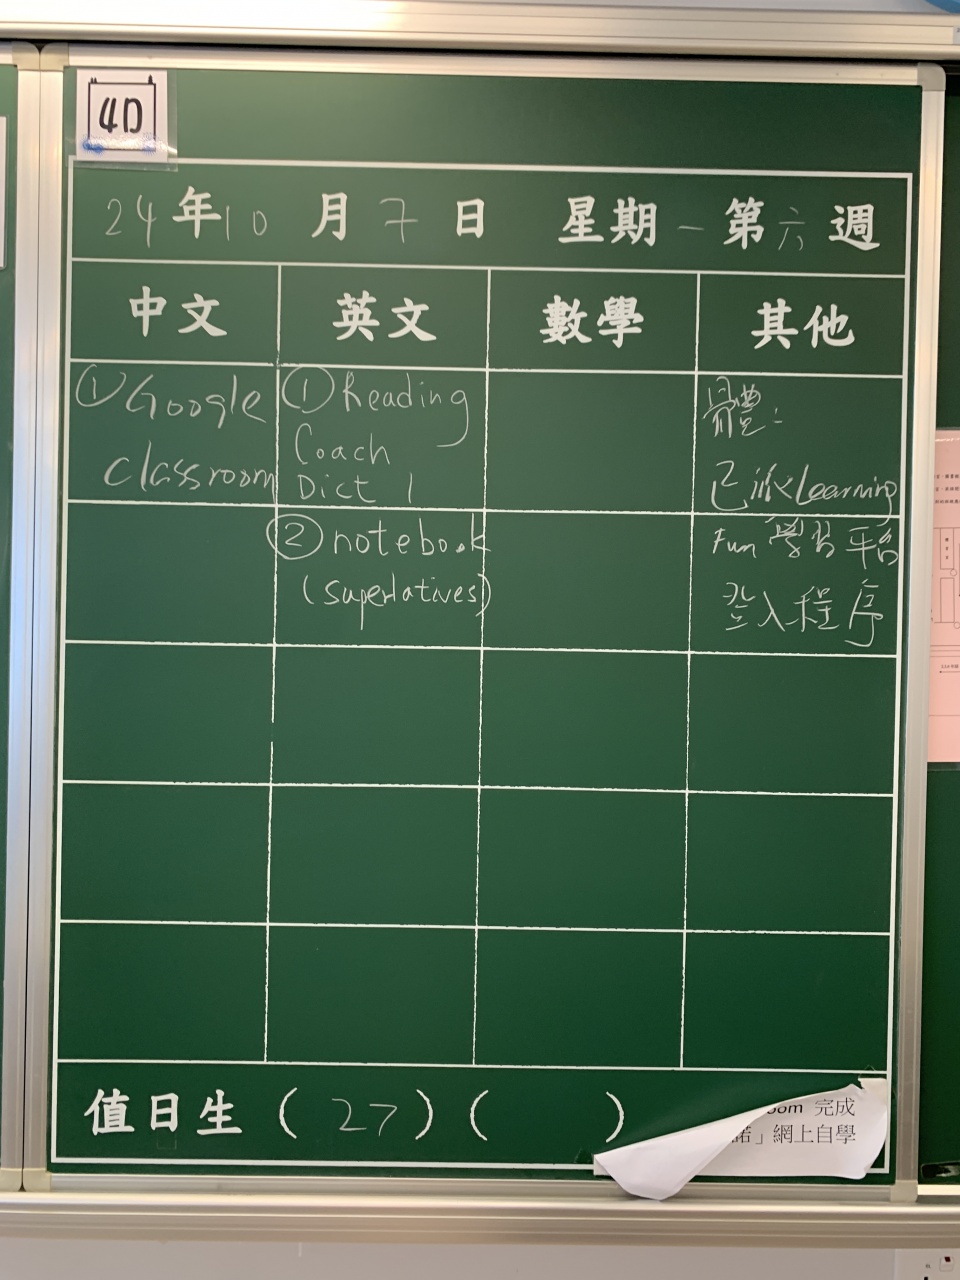 4D
24年10月7日 星期一 第六週
中文 英文 數學 其他
① Google
classroom
① Reading
Coach
Dict 1
② notebook
(superlatives)
體:
已派Learning
Fun 學習平台
登入程序
值日生 (27) ( )
oom 完成
諾」網上自學